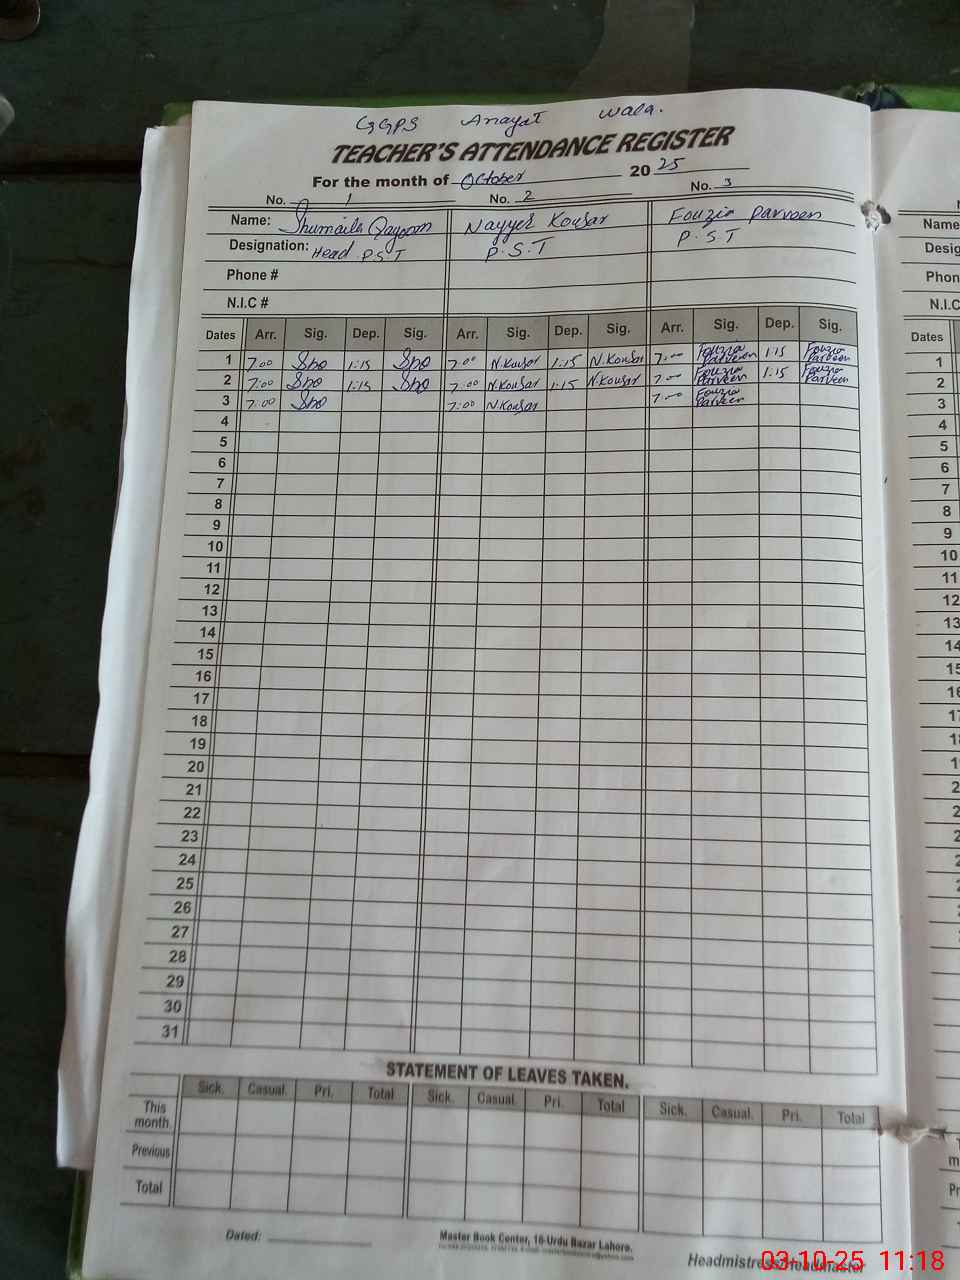 GGPS Anayat Wala.
TEACHER'S ATTENDANCE REGISTER
For the month of October 2025
No. 1 No. 2 No. 3
Name: Shumaila Qayoom Nayyer Kousar Fouzia Parveen
Designation: Head P.S.T P.S.T P.S.T
Phone #
N.I.C #
Dates Arr. Sig. Dep. Sig. Arr. Sig. Dep. Sig. Arr. Sig. Dep. Sig.
1 7:00 1:15 7:00 N.Kousar 1:15 N.Kousar 7:00 Fouzia Parveen 1:15 Fouzia Parveen
2 7:00 1:15 7:00 N.Kousar 1:15 N.Kousar 7:00 Fouzia Parveen 1:15 Fouzia Parveen
3 7:00 7:00 N.Kousar 7:00 Fouzia Parveen
4
5
6
7
8
9
10
11
12
13
14
15
16
17
18
19
20
21
22
23
24
25
26
27
28
29
30
31
STATEMENT OF LEAVES TAKEN.
Sick. Casual. Pri. Total Sick. Casual. Pri. Total Sick. Casual. Pri. Total
This month
Previous
Total
Dated:
Master Book Center, 16-Urdu Bazar Lahore.
Headmistress/Headmaster
03-10-25 11:18
Name
Desig
Phon
N.I.C
Dates
1
2
3
4
5
6
7
8
9
10
11
12
13
14